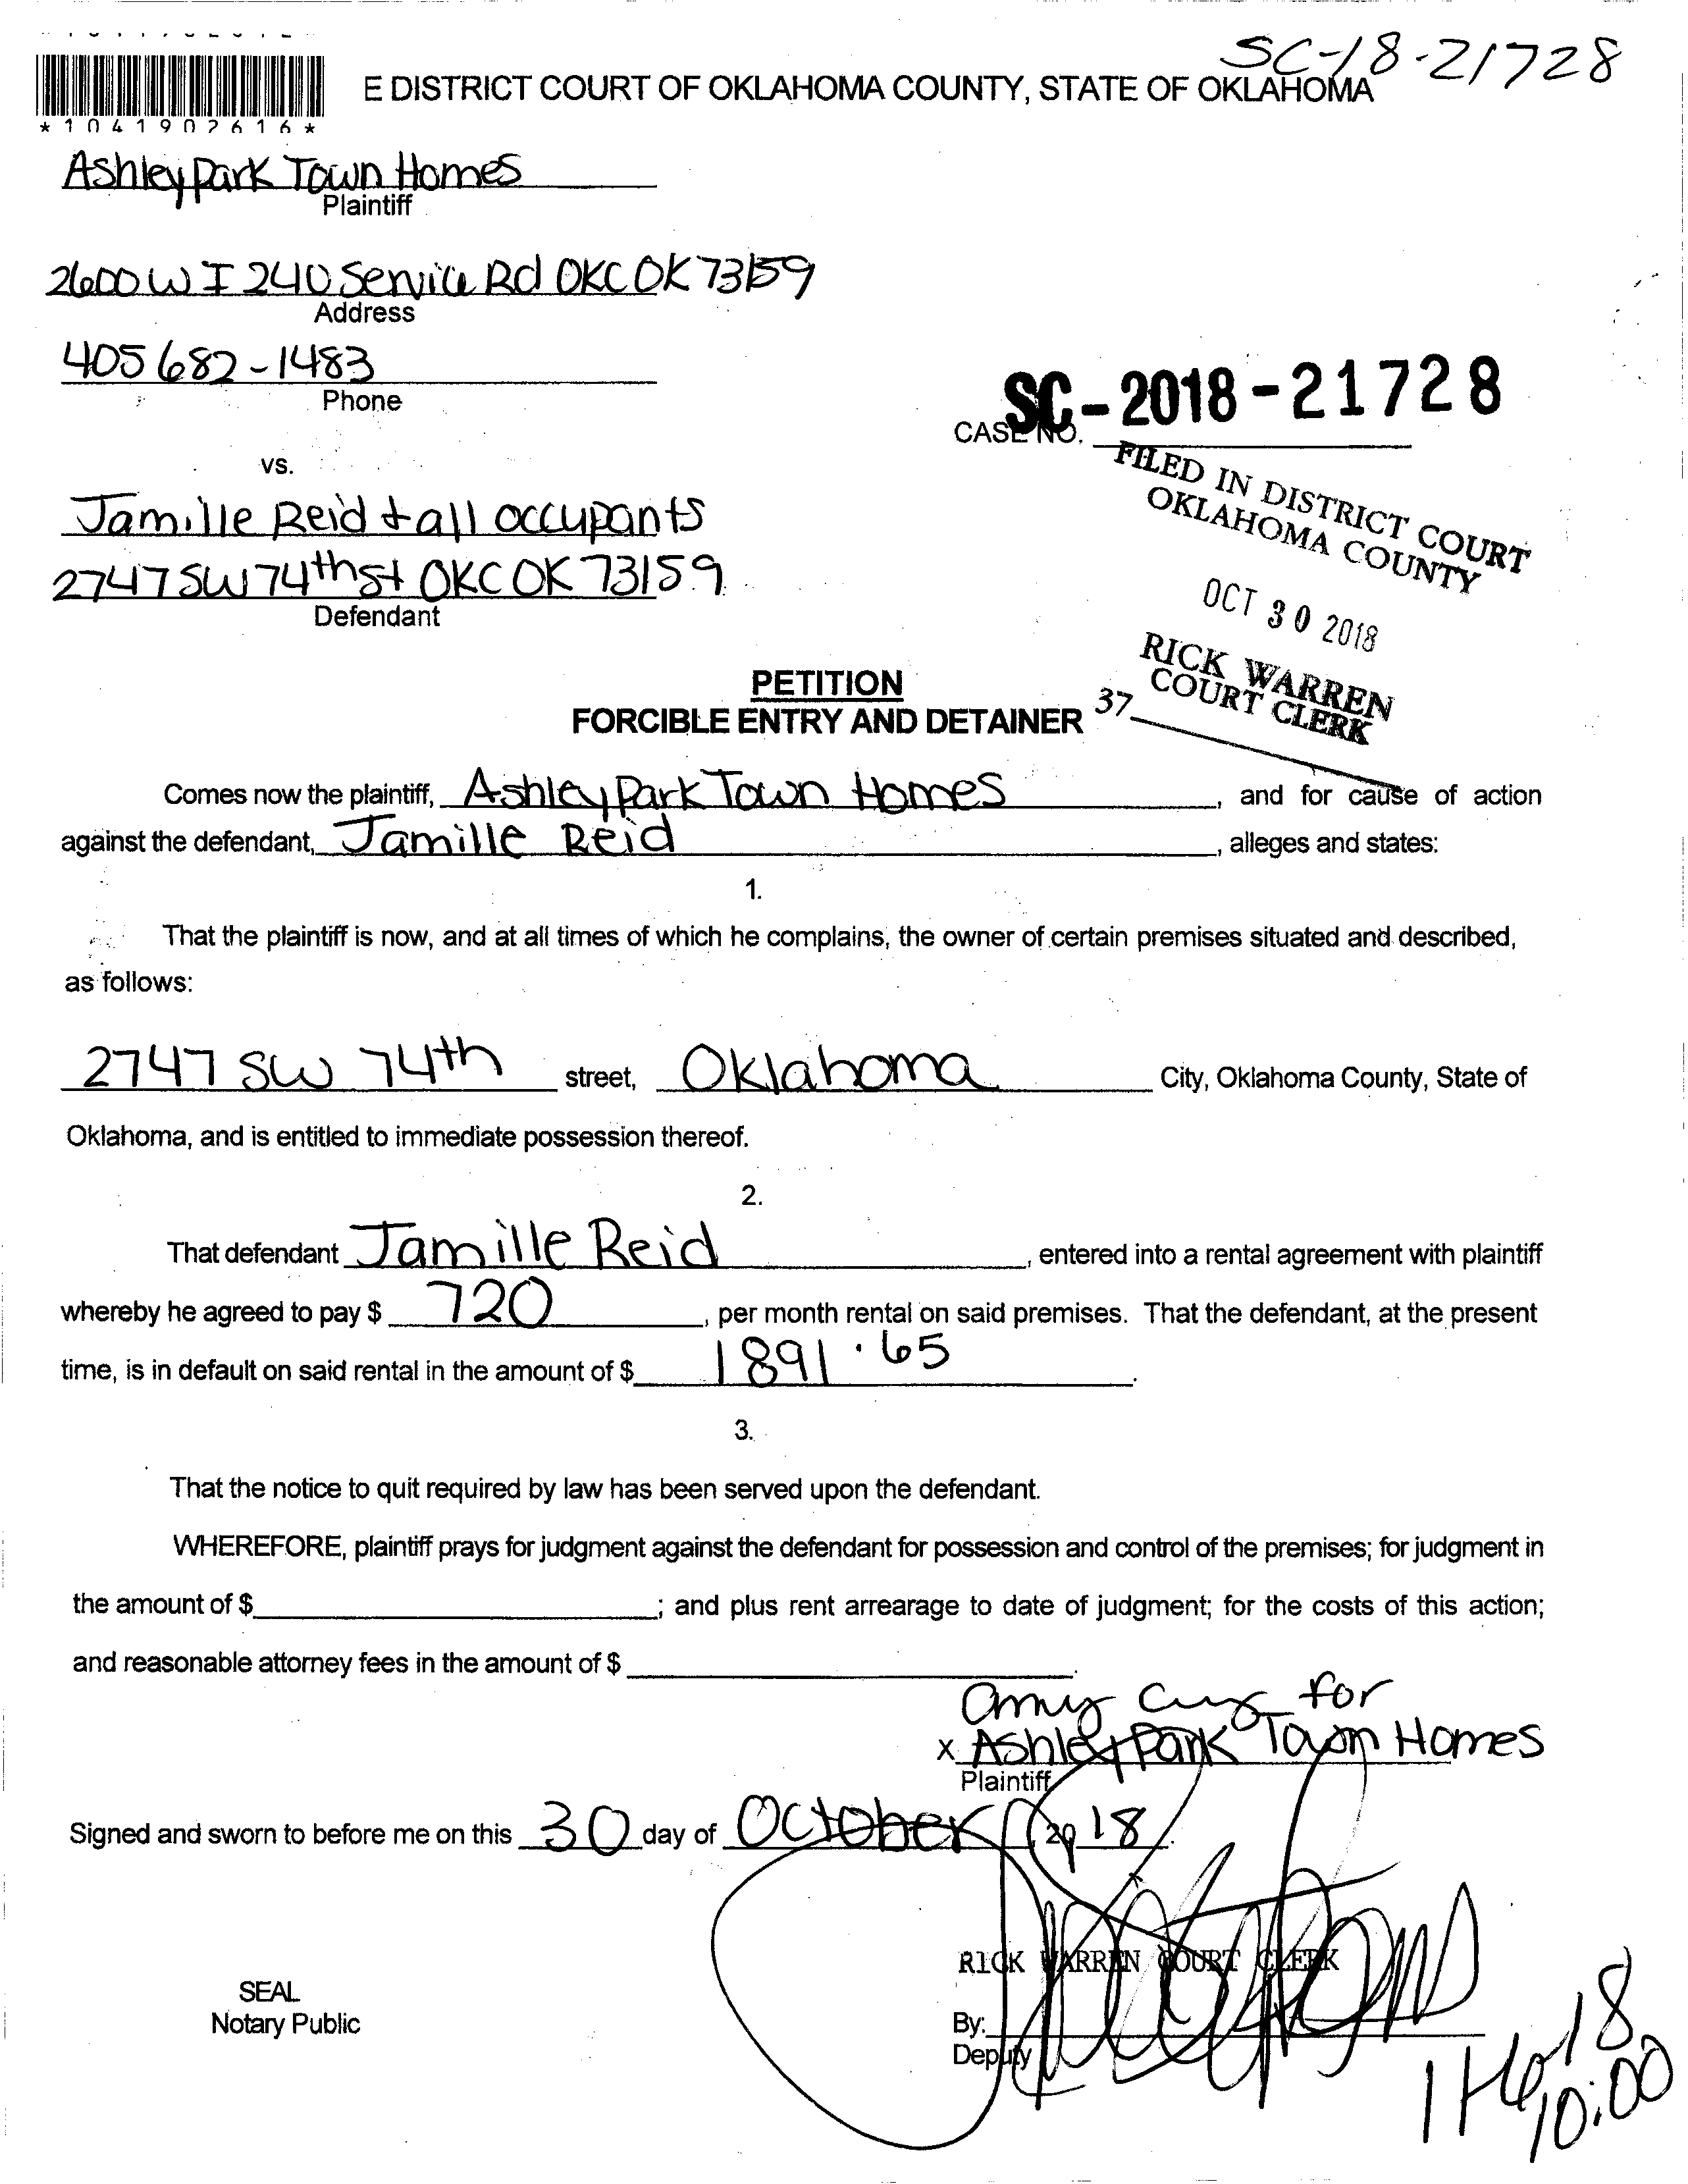 SC-18-21728
E DISTRICT COURT OF OKLAHOMA COUNTY, STATE OF OKLAHOMA
*1041902616*
Ashley Park Town Homes
Plaintiff
2600 W I 240 Service Rd OKC OK 73159
Address
405 682-1483
Phone
SC-2018-21728
CASE NO.
vs.
FILED IN DISTRICT COURT
OKLAHOMA COUNTY
Jamille Reid + all occupants
2747 SW 74th st OKC OK 73159
Defendant
OCT 30 2018
RICK WARREN
COURT CLERK
37
PETITION
FORCIBLE ENTRY AND DETAINER
Comes now the plaintiff, Ashley Park Town Homes, and for cause of action
against the defendant, Jamille Reid, alleges and states:
1.
That the plaintiff is now, and at all times of which he complains, the owner of certain premises situated and described,
as follows:
2747 SW 74th street, Oklahoma City, Oklahoma County, State of
Oklahoma, and is entitled to immediate possession thereof.
2.
That defendant Jamille Reid, entered into a rental agreement with plaintiff
whereby he agreed to pay $ 720, per month rental on said premises. That the defendant, at the present
time, is in default on said rental in the amount of $ 1891.65.
3.
That the notice to quit required by law has been served upon the defendant.
WHEREFORE, plaintiff prays for judgment against the defendant for possession and control of the premises; for judgment in
the amount of $ ; and plus rent arrearage to date of judgment; for the costs of this action;
and reasonable attorney fees in the amount of $ .
Amy for
x Ashley Park Town Homes
Plaintiff
Signed and sworn to before me on this 30 day of October, 2018.
RICK WARREN COURT CLERK
SEAL
Notary Public
By:
Deputy
11-6-18
10:00